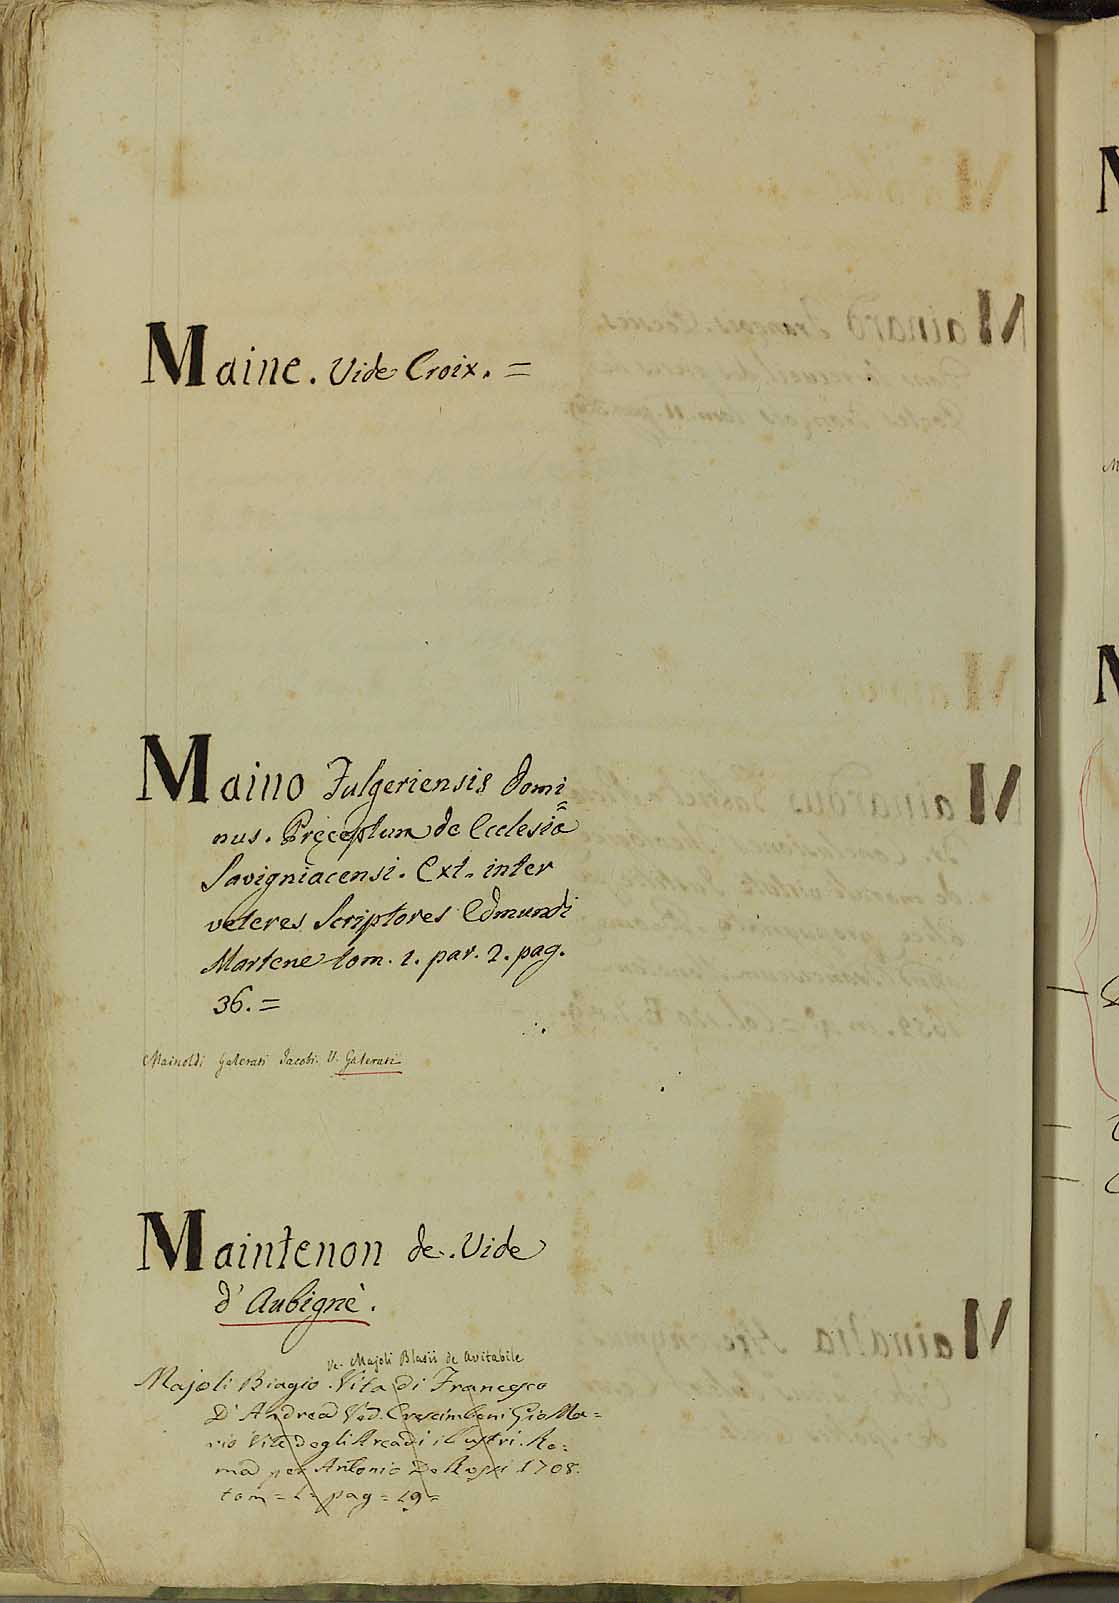 Maine. Vide Croix. =
Maino Fulgeriensis Domi=
nus. Pręceptum de Ecclesia
Savigniacensi. Ext. inter
veteres Scriptores Edmundi
Martene tom. 1. par. 2. pag.
36. =
Mainoldi Galerati Jacobi. V. Galerati
Maintenon de. Vide
d'Aubignè.
Ve. Majoli Blasii de Avitabile
Majoli Biagio. Vita di Francesco
D'Andrea Ved. Crescimbeni Gio Ma=
rio Vite degli Arcadi illustri. Ro=
ma per Antonio De Rossi 1708.
tom = 1 = pag = 49 =